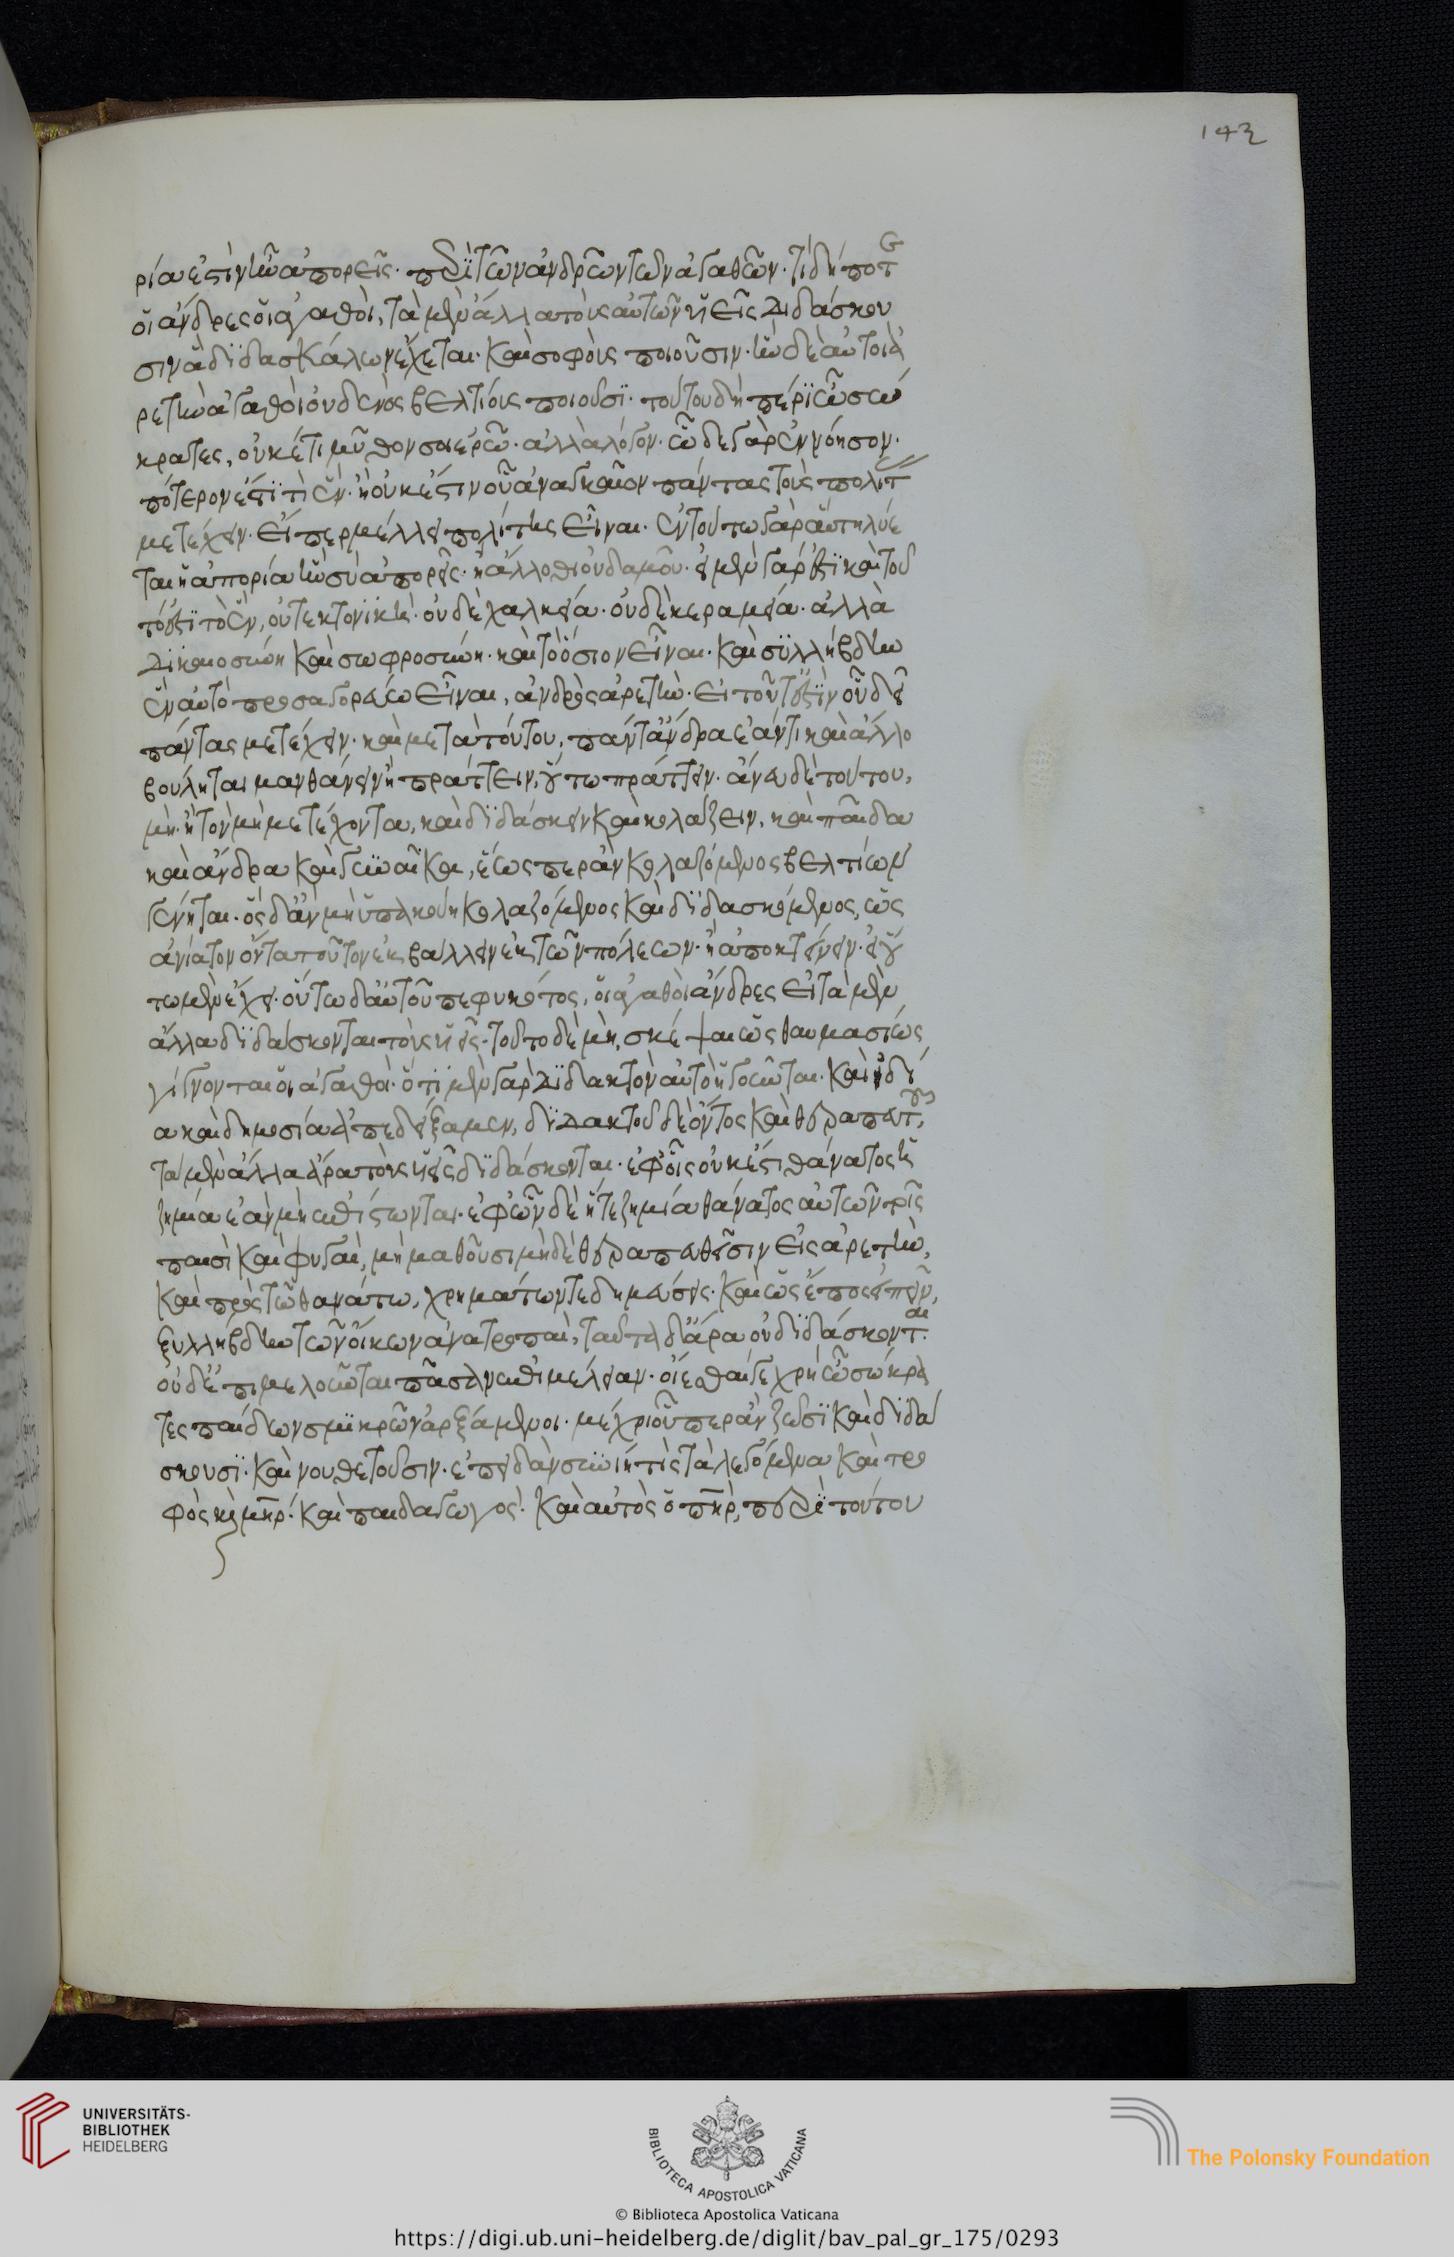 143
ρία ἐστὶν ἣν ἀπορεῖς· περὶ τῶν ἀνδρῶν τῶν ἀγαθῶν· τί δή ποτε
οἱ ἄνδρες οἱ ἀγαθοὶ, τὰ μὲν ἄλλα τοὺς αὑτῶν υἱεῖς διδάσκου
σιν ἃ διδασκάλων ἔχεται· καὶ σοφοὺς ποιοῦσιν· ἣν δὲ αὐτοὶ ἀ
ρετὴν ἀγαθοὶ οὐδενὸς βελτίους ποιοῦσι· τούτου δὴ πέρι ὦ σώ
κρατες, οὐκέτι μῦθον σοι ἐρῶ· ἀλλὰ λόγον· ὧδε γὰρ ἐννόησον·
πότερον ἔστι τὶ ἓν· ἢ οὐκ ἔστιν οὗ ἀναγκαῖον πάντας τοὺς πολίτας
μετέχειν· εἴπερ μέλλει πόλις εἶναι· ἐν τούτω γὰρ αὕτη λύε
ται ἡ ἀπορία ἣν σὺ ἀπορεῖς· ἢ ἄλλοθι οὐδαμοῦ· εἰ μὲν γὰρ ἔστι καὶ τοῦ
τό ἐστι τὸ ἓν, οὐ τεκτονικὴ· οὐδὲ χαλκεία· οὐδὲ κεραμεία· ἀλλὰ
δικαιοσύνη καὶ σωφροσύνη· καὶ τὸ ὅσιον εἶναι· καὶ συλλήβδην
ἓν αὐτὸ προσαγορεύω εἶναι, ἀνδρὸς ἀρετὴν· εἰ τοῦτ' ἔστιν οὗ δεῖ
πάντας μετέχειν· καὶ μετὰ τούτου, πάντ' ἄνδρα ἐάν τι καὶ ἄλλο
βούληται μανθάνειν ἢ πράττειν, οὕτω πράττειν· ἄνευ δὲ τούτου,
μὴ· ἢ τὸν μὴ μετέχοντα, καὶ διδάσκειν καὶ κολάζειν, καὶ παῖδα
καὶ ἄνδρα καὶ γυναῖκα, ἕωσπερ ἂν κολαζόμενος βελτίων
γένηται· ὃς δ' ἂν μὴ ὑπακούη κολαζόμενος καὶ διδασκόμενος, ὡς
ἀνίατον ὄντα τοῦτον ἐκβάλλειν ἐκ τῶν πόλεων· ἢ ἀποκτείνειν· εἰ οὕ
τω μὲν ἔχει· οὕτω δ' αὐτοῦ πεφυκότος, οἱ ἀγαθοὶ ἄνδρες εἰ τὰ μὲν
ἄλλα διδάσκονται τοὺς υἱεῖς· τοῦτο δὲ μὴ, σκέψαι ὡς θαυμασίως
γίγνονται οἱ ἀγαθοὶ· ὅτι μὲν γὰρ διδακτὸν αὐτὸ ἡγοῦνται· καὶ ἰδί
α καὶ δημοσία ἀπεδείξαμεν, διδακτοῦ δὲ ὄντος καὶ θεραπευτοῦ,
τὰ μὲν ἄλλα ἄρα τοὺς υἱεῖς διδάσκονται· ἐφ' οἷς οὐκ ἔστι θάνατος ἡ
ζημία ἐὰν μὴ ἐπίστωνται· ἐφ' ὧν δὲ ἥ τε ζημία θάνατος αὐτῶν τοῖς
παισὶ καὶ φυγαὶ, μὴ μαθοῦσι μὴ δὲ θεραπευθεῖσιν εἰς ἀρετὴν,
καὶ πρὸς τῶ θανάτω, χρημάτων τε δημεύσεις· καὶ ὡς ἔπος εἰπεῖν,
ξυλλήβδην τῶν οἴκων ἀνατροπαὶ, ταῦτα δ' ἄρα οὐ διδάσκονται·
οὐδ' ἐπιμελοῦνται πᾶσαν ἐπιμέλειαν· οἴεσθαί γε χρὴ ὦ σώκρα
τες παίδων σμικρῶν ἀρξάμενοι· μέχρι οὗπερ ἂν ζῶσι καὶ διδά
σκουσι· καὶ νουθετοῦσιν· ἐπειδὰν συνίη τὶς τὰ λεγόμενα καὶ τρο
φὸς καὶ μήτηρ· καὶ παιδαγωγὸς· καὶ αὐτὸς ὁ πατήρ, περὶ τούτου
UNIVERSITÄTS-
BIBLIOTHEK
HEIDELBERG
BIBLIOTECA APOSTOLICA VATICANA
The Polonsky Foundation
© Biblioteca Apostolica Vaticana
https://digi.ub.uni-heidelberg.de/diglit/bav_pal_gr_175/0293